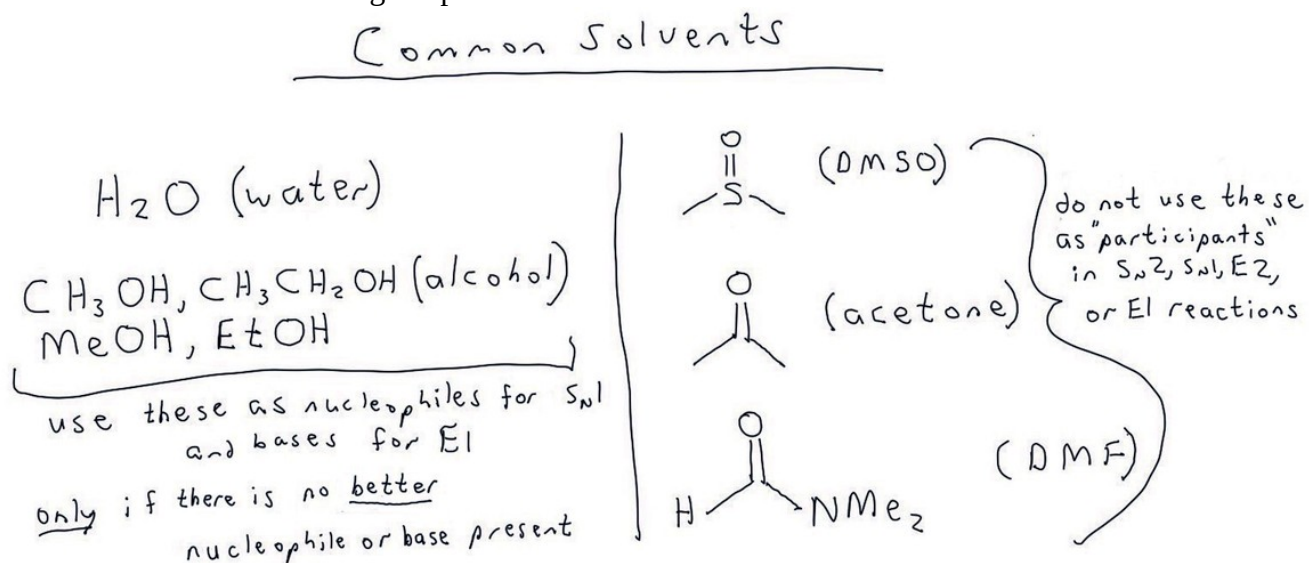 Common Solvents
H2O (water)
CH3OH, CH3CH2OH (alcohol)
MeOH, EtOH
use these as nucleophiles for SN1
and bases for E1
only if there is no better
nucleophile or base present
O
S
(DMSO)
O
(acetone)
O
H
NMe2
(DMF)
do not use these
as "participants"
in SN2, SN1, E2,
or E1 reactions